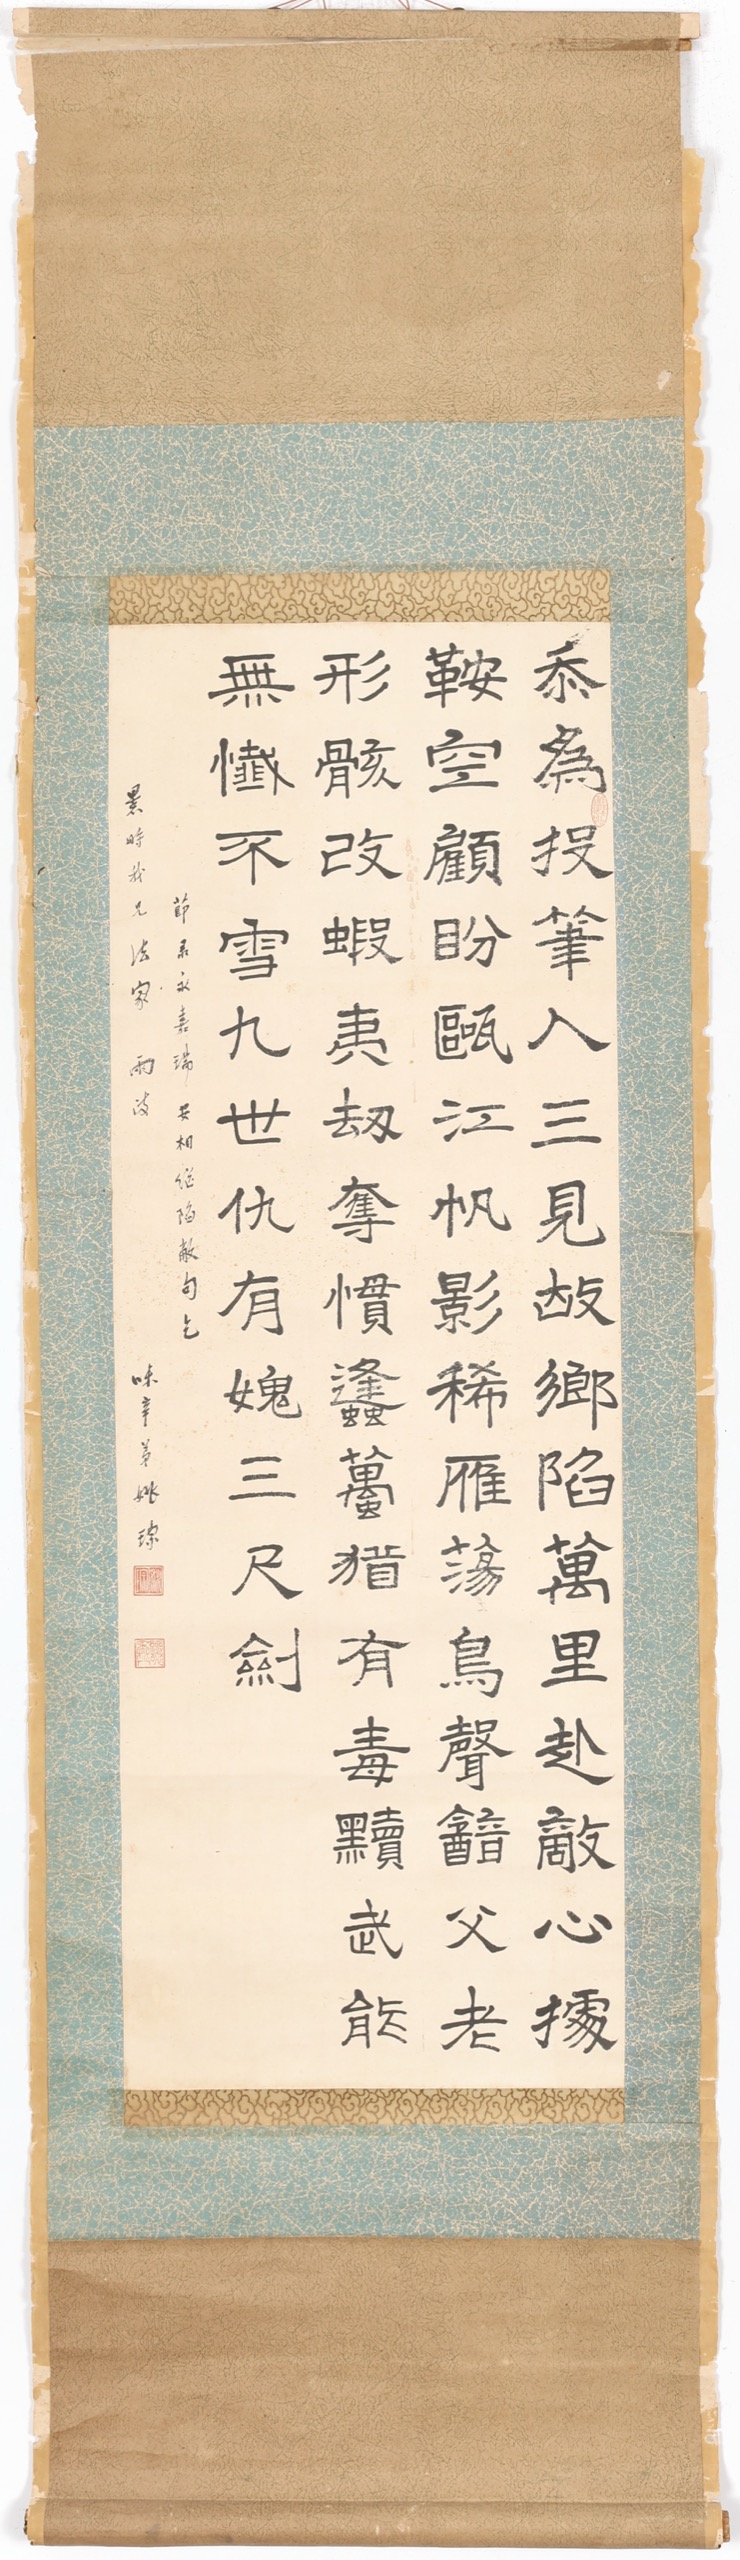 忝為投筆人三見故鄉陷萬里赴敵心據
鞍空顧盼甌江帆影稀雁蕩鳥聲韽父老
形骸改蝦夷劫奪慣逢蠆猶有毒黷武能
無懺不雪九世仇有媿三尺劍
節录永嘉瑞安相繼陷敵句乞
景時我兄法家 兩政
味辛弟姚琮